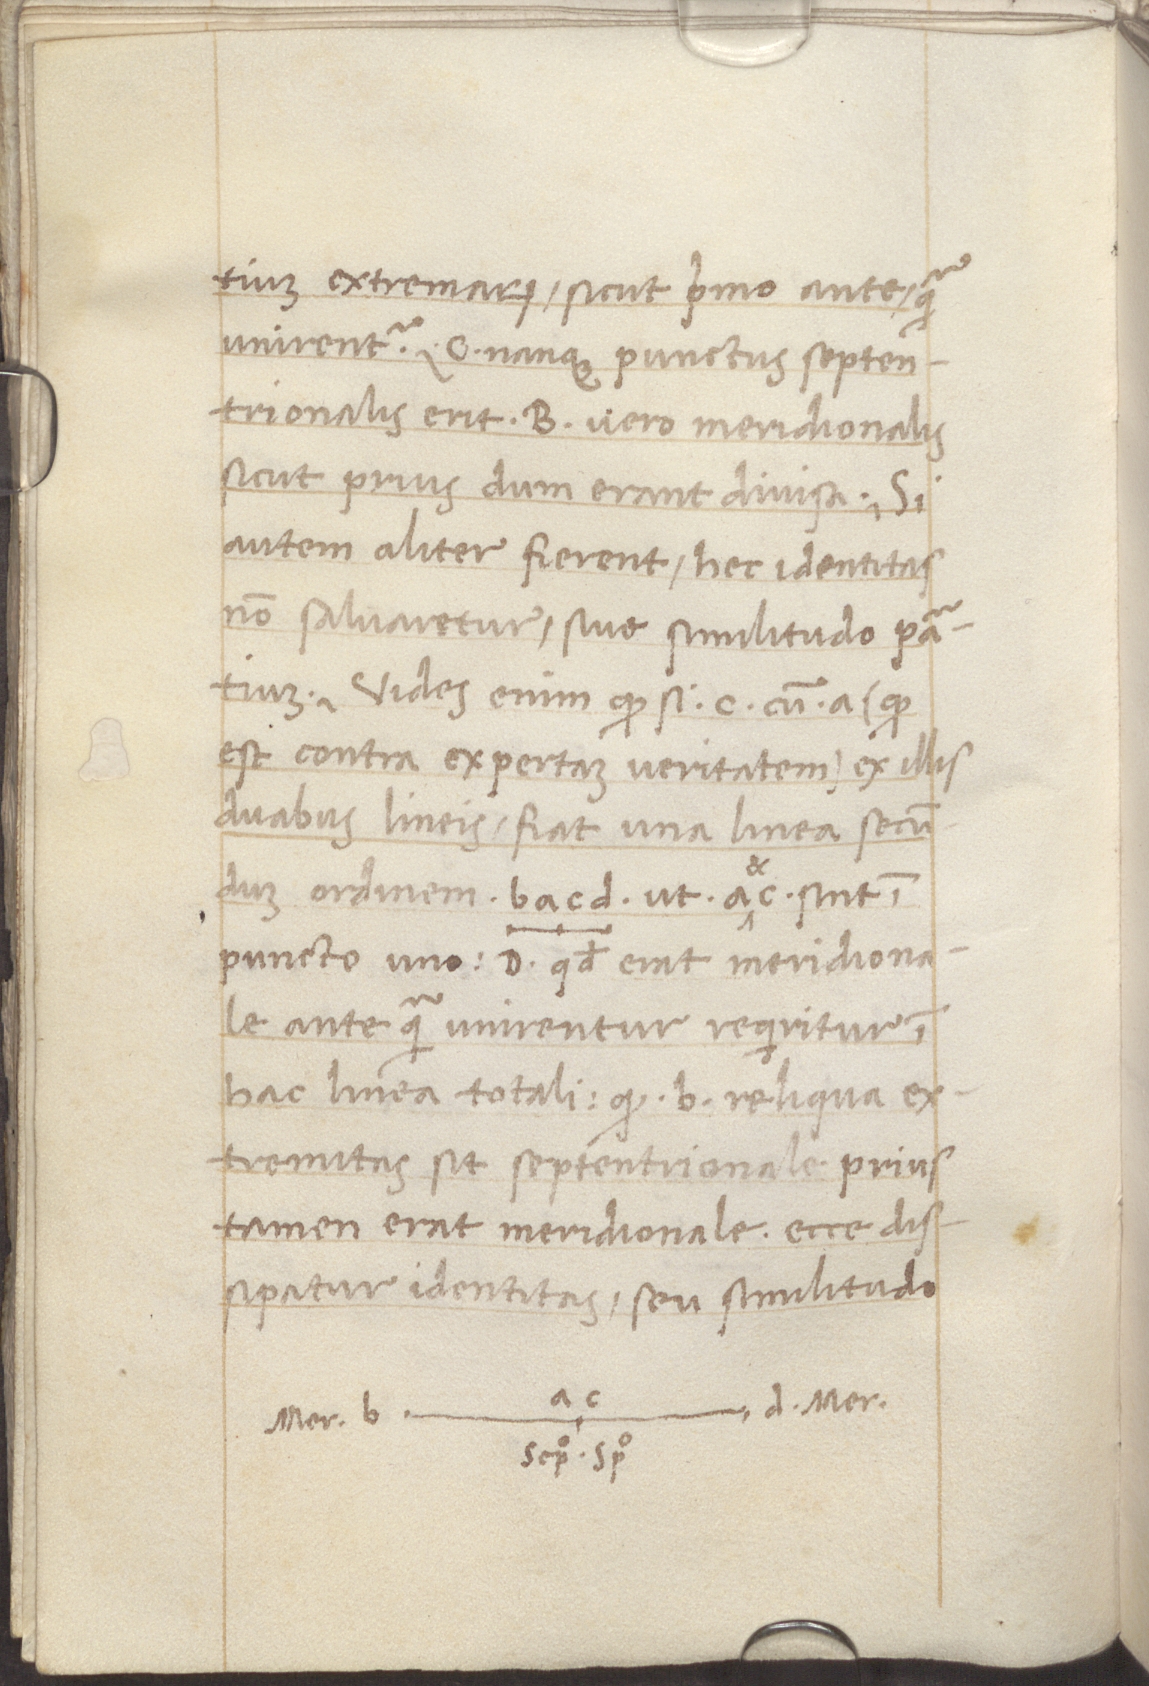 tiuꝫ extremaꝝ / sicut p̓mo ante / qᷓ
unirentᷣ. C. nanqꝫ punctus septen-
trionalis erit . B . uero meridionalis
sicut prius dum erant diuisa . Si
autem aliter fierent / hec identitas
nō saluaretur / siue similitudo paᷓ-
tiuꝫ . Vides enim ꝙ si . c . cū . a (ꝙ
est contra expertaꝫ ueritatem) ex illis
duabus lineis / fiat una linea secū-
duꝫ ordinem . b a c d . ut . a & c . sint ī
puncto uno : D . qđ erat meridiona-
le ante qᷓ unirentur reqͥritur ī
hac linea totali : ꝙ . b . reliqua ex-
tremitas sit septentrionale prius
tamen erat meridionale . ecce dis-
sipatur identitas / seu similitudo
a c
Mer . b . d . Mer .
Sepͦ . Spͦ